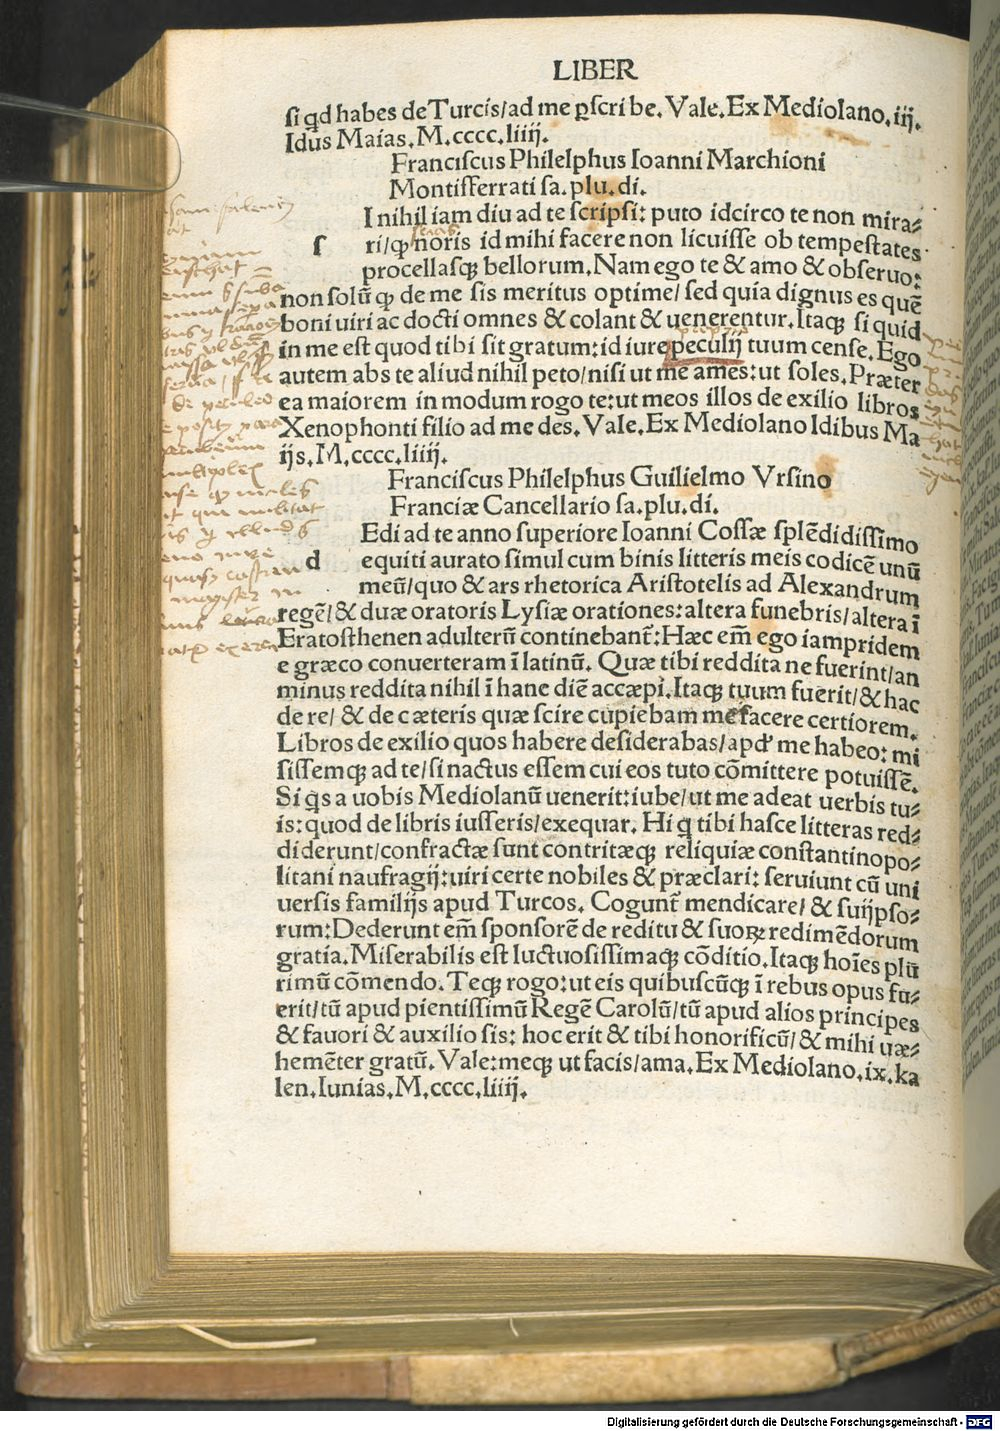 LIBER
si qd habes de Turcis/ad me ꝑscribe. Vale. Ex Mediolano. iij.
Idus Maias. M.cccc.liiij.
Franciscus Philelphus Ioanni Marchioni
Montisferrati sa. plu. di.
I nihil iam diu ad te scripsi: puto idcirco te non mira⸗
s ri/ꝙ noris id mihi facere non licuisse ob tempestates
procellasqꝫ bellorum. Nam ego te & amo & obseruo:
non solū ꝙ de me sis meritus optime/ sed quia dignus es quē
boni uiri ac docti omnes & colant & uenerentur. Itaqꝫ si quid
in me est quod tibi sit gratum: id iure peculij tuum cense. Ego
autem abs te aliud nihil peto/nisi ut me ames: ut soles. Præter
ea maiorem in modum rogo te: ut meos illos de exilio libros
Xenophonti filio ad me des. Vale. Ex Mediolano Idibus Ma
ijs. M.cccc.liiij.
Franciscus Philelphus Guilielmo Vrsino
Franciæ Cancellario sa. plu. di.
Edi ad te anno superiore Ioanni Cossæ splēdidissimo
d equiti aurato simul cum binis litteris meis codicē unū
meū/quo & ars rhetorica Aristotelis ad Alexandrum
regē/& duæ oratoris Lysiæ orationes: altera funebris/altera ī
Eratosthenen adulterū continebant̄: Hæc em̄ ego iampridem
e græco conuerteram ī latinū. Quæ tibi reddita ne fuerint/an
minus reddita nihil ī hanc diē accæpi. Itaqꝫ tuum fuerit/& hac
de re/ & de cæteris quæ scire cupiebam me facere certiorem.
Libros de exilio quos habere desiderabas/apd' me habeo: mi
sissemqꝫ ad te/si nactus essem cui eos tuto cōmittere potuissē.
Si qs a uobis Mediolanū uenerit: iube/ut me adeat uerbis tu⸗
is: quod de libris iusseris/exequar. Hi q tibi hasce litteras red⸗
diderunt/confractæ sunt contritæqꝫ reliquiæ constantinopo⸗
litani naufragij: uiri certe nobiles & præclari: seruiunt cū uni
uersis familijs apud Turcos. Cogunt̄ mendicare/ & suijpso⸗
rum: Dederunt em̄ sponsorē de reditu & suoꝝ redimēdorum
gratia. Miserabilis est luctuosissimaqꝫ cōditio. Itaqꝫ hoīes plū
rimū cōmendo. Teqꝫ rogo: ut eis quibuscūqꝫ ī rebus opus fu⸗
erit/tū apud pientissimū Regē Carolū/tū apud alios principes
& fauori & auxilio sis: hoc erit & tibi honorificū/ & mihi uæ⸗
hemēter gratū. Vale: meqꝫ ut facis/ama. Ex Mediolano. ix. ka
len. Iunias. M.cccc.liiij.
Digitalisierung gefördert durch die Deutsche Forschungsgemeinschaft - DFG